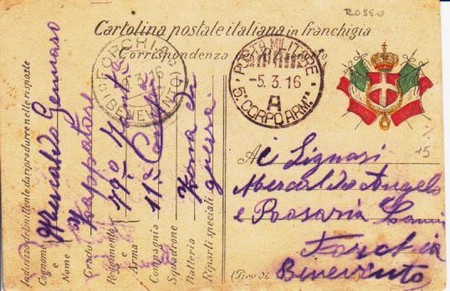 ROSSO
Cartolina postale italiana in franchigia
Corrispondenza
FORCHIA
3.16
(BENEVENTO)
POSTA MILITARE
-5.3.16
A
5° CORPO ARM.
15
Indirizzo del mittente da riprodurre nelle risposte
Cognome e Nome Mercaldo Gennaro
Grado Zappatore
Reggimento e Arma
Compagnia 11ª
Squadrone
Batteria Zona di
Riparti speciali guerra
Signori
Mercaldo Angelo
e Rosaria
Forchia
(Prov. di) Benevento